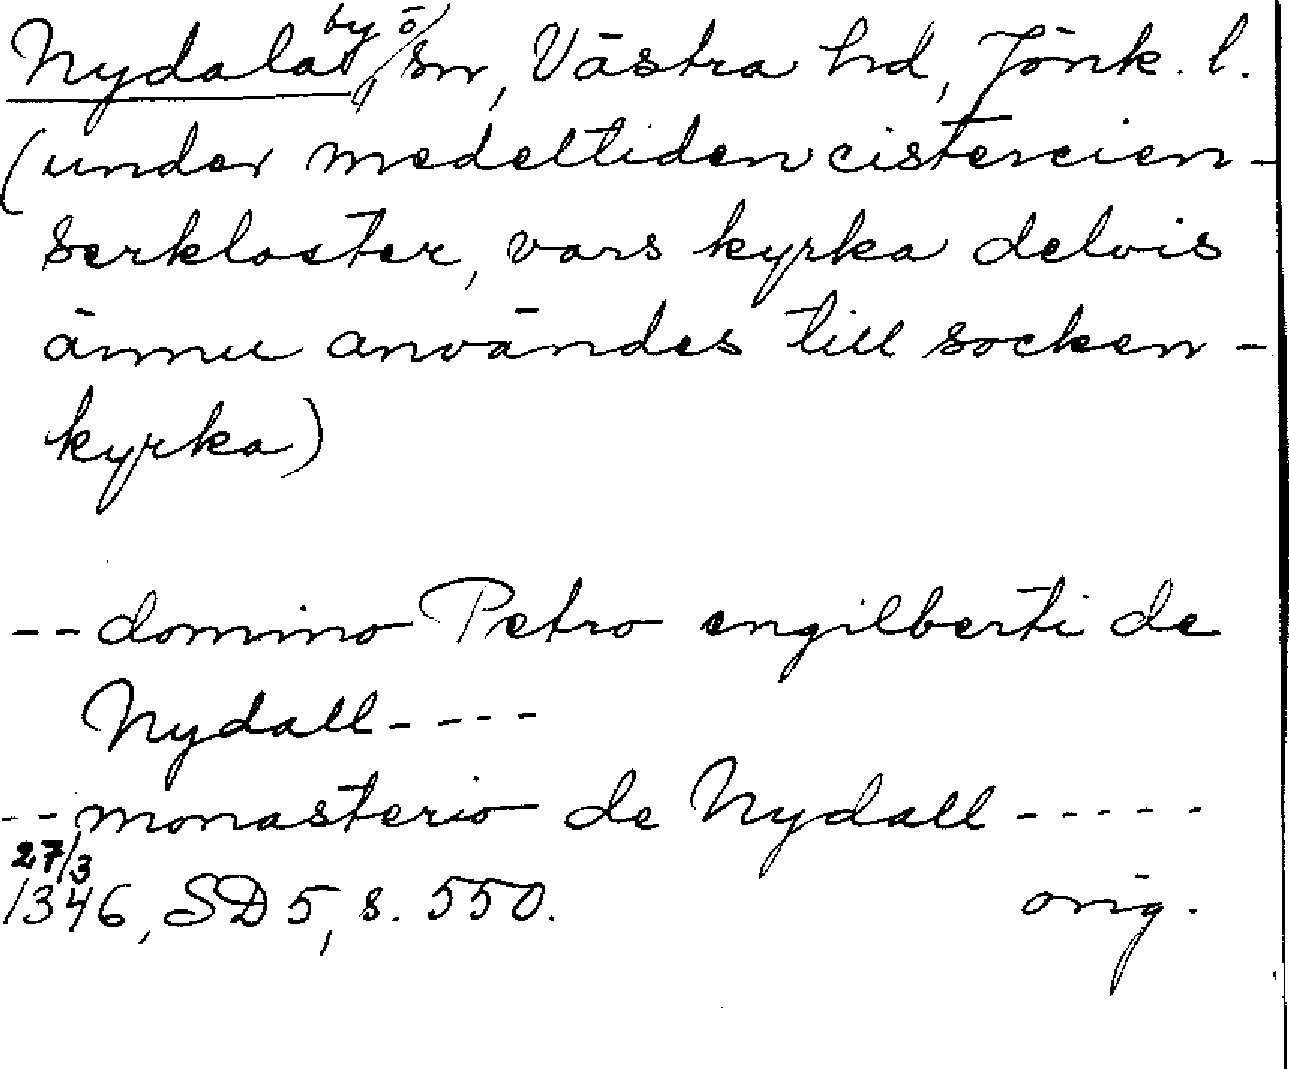 Nydala by o/ sn, Västra hd, Jönk. l.
(under medeltiden cistercien-
serkloster, vars kyrka delvis
ännu användes till socken-
kyrka)
-- domino Petro engilberti de
Nydall ----
-- monasterio de Nydall -----
27/3
1346, SD 5, s. 550. orig.